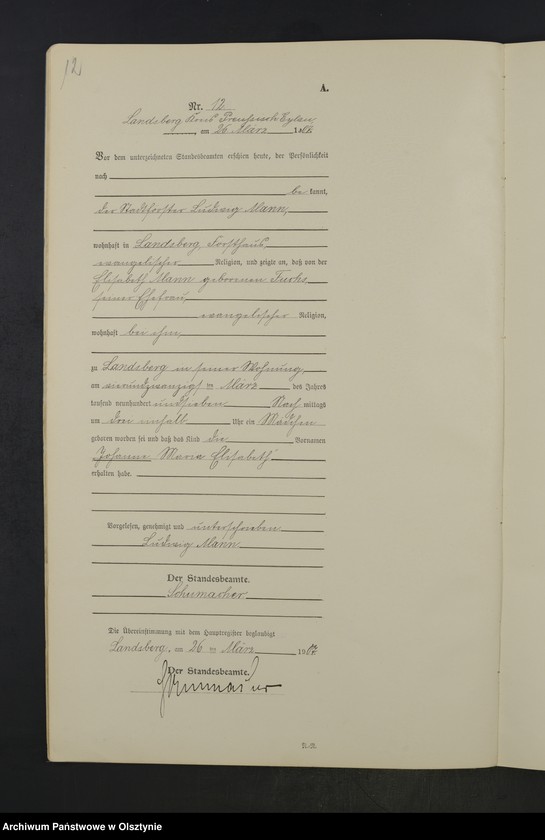 12
A.
Nr. 12
Landsberg Kreis Preussisch Eylau,
am 26 März 1907
Vor dem unterzeichneten Standesbeamten erschien heute, der Persönlichkeit
nach
be kannt,
der Stadtförster Ludwig Mann,
wohnhaft in Landsberg, Forsthaus
evangelischer Religion, und zeigte an, daß von der
Elisabeth Mann geborenen
seiner Ehefrau,
evangelischer Religion,
wohnhaft bei ihm,
zu Landsberg in seiner Wohnung,
am vierundzwanzigsten März des Jahres
tausend neunhundert und sieben Nach mittags
um drei einhalb Uhr ein Mädchen
geboren worden sei und daß das Kind die Vornamen
Johanne Maria Elisabeth
erhalten habe.
Vorgelesen, genehmigt und unterschrieben
Ludwig Mann
Der Standesbeamte.
Schumacher
Die Übereinstimmung mit dem Hauptregister beglaubigt
Landsberg, am 26 ten März 1907
Der Standesbeamte.
Schumacher
Archiwum Państwowe w Olsztynie